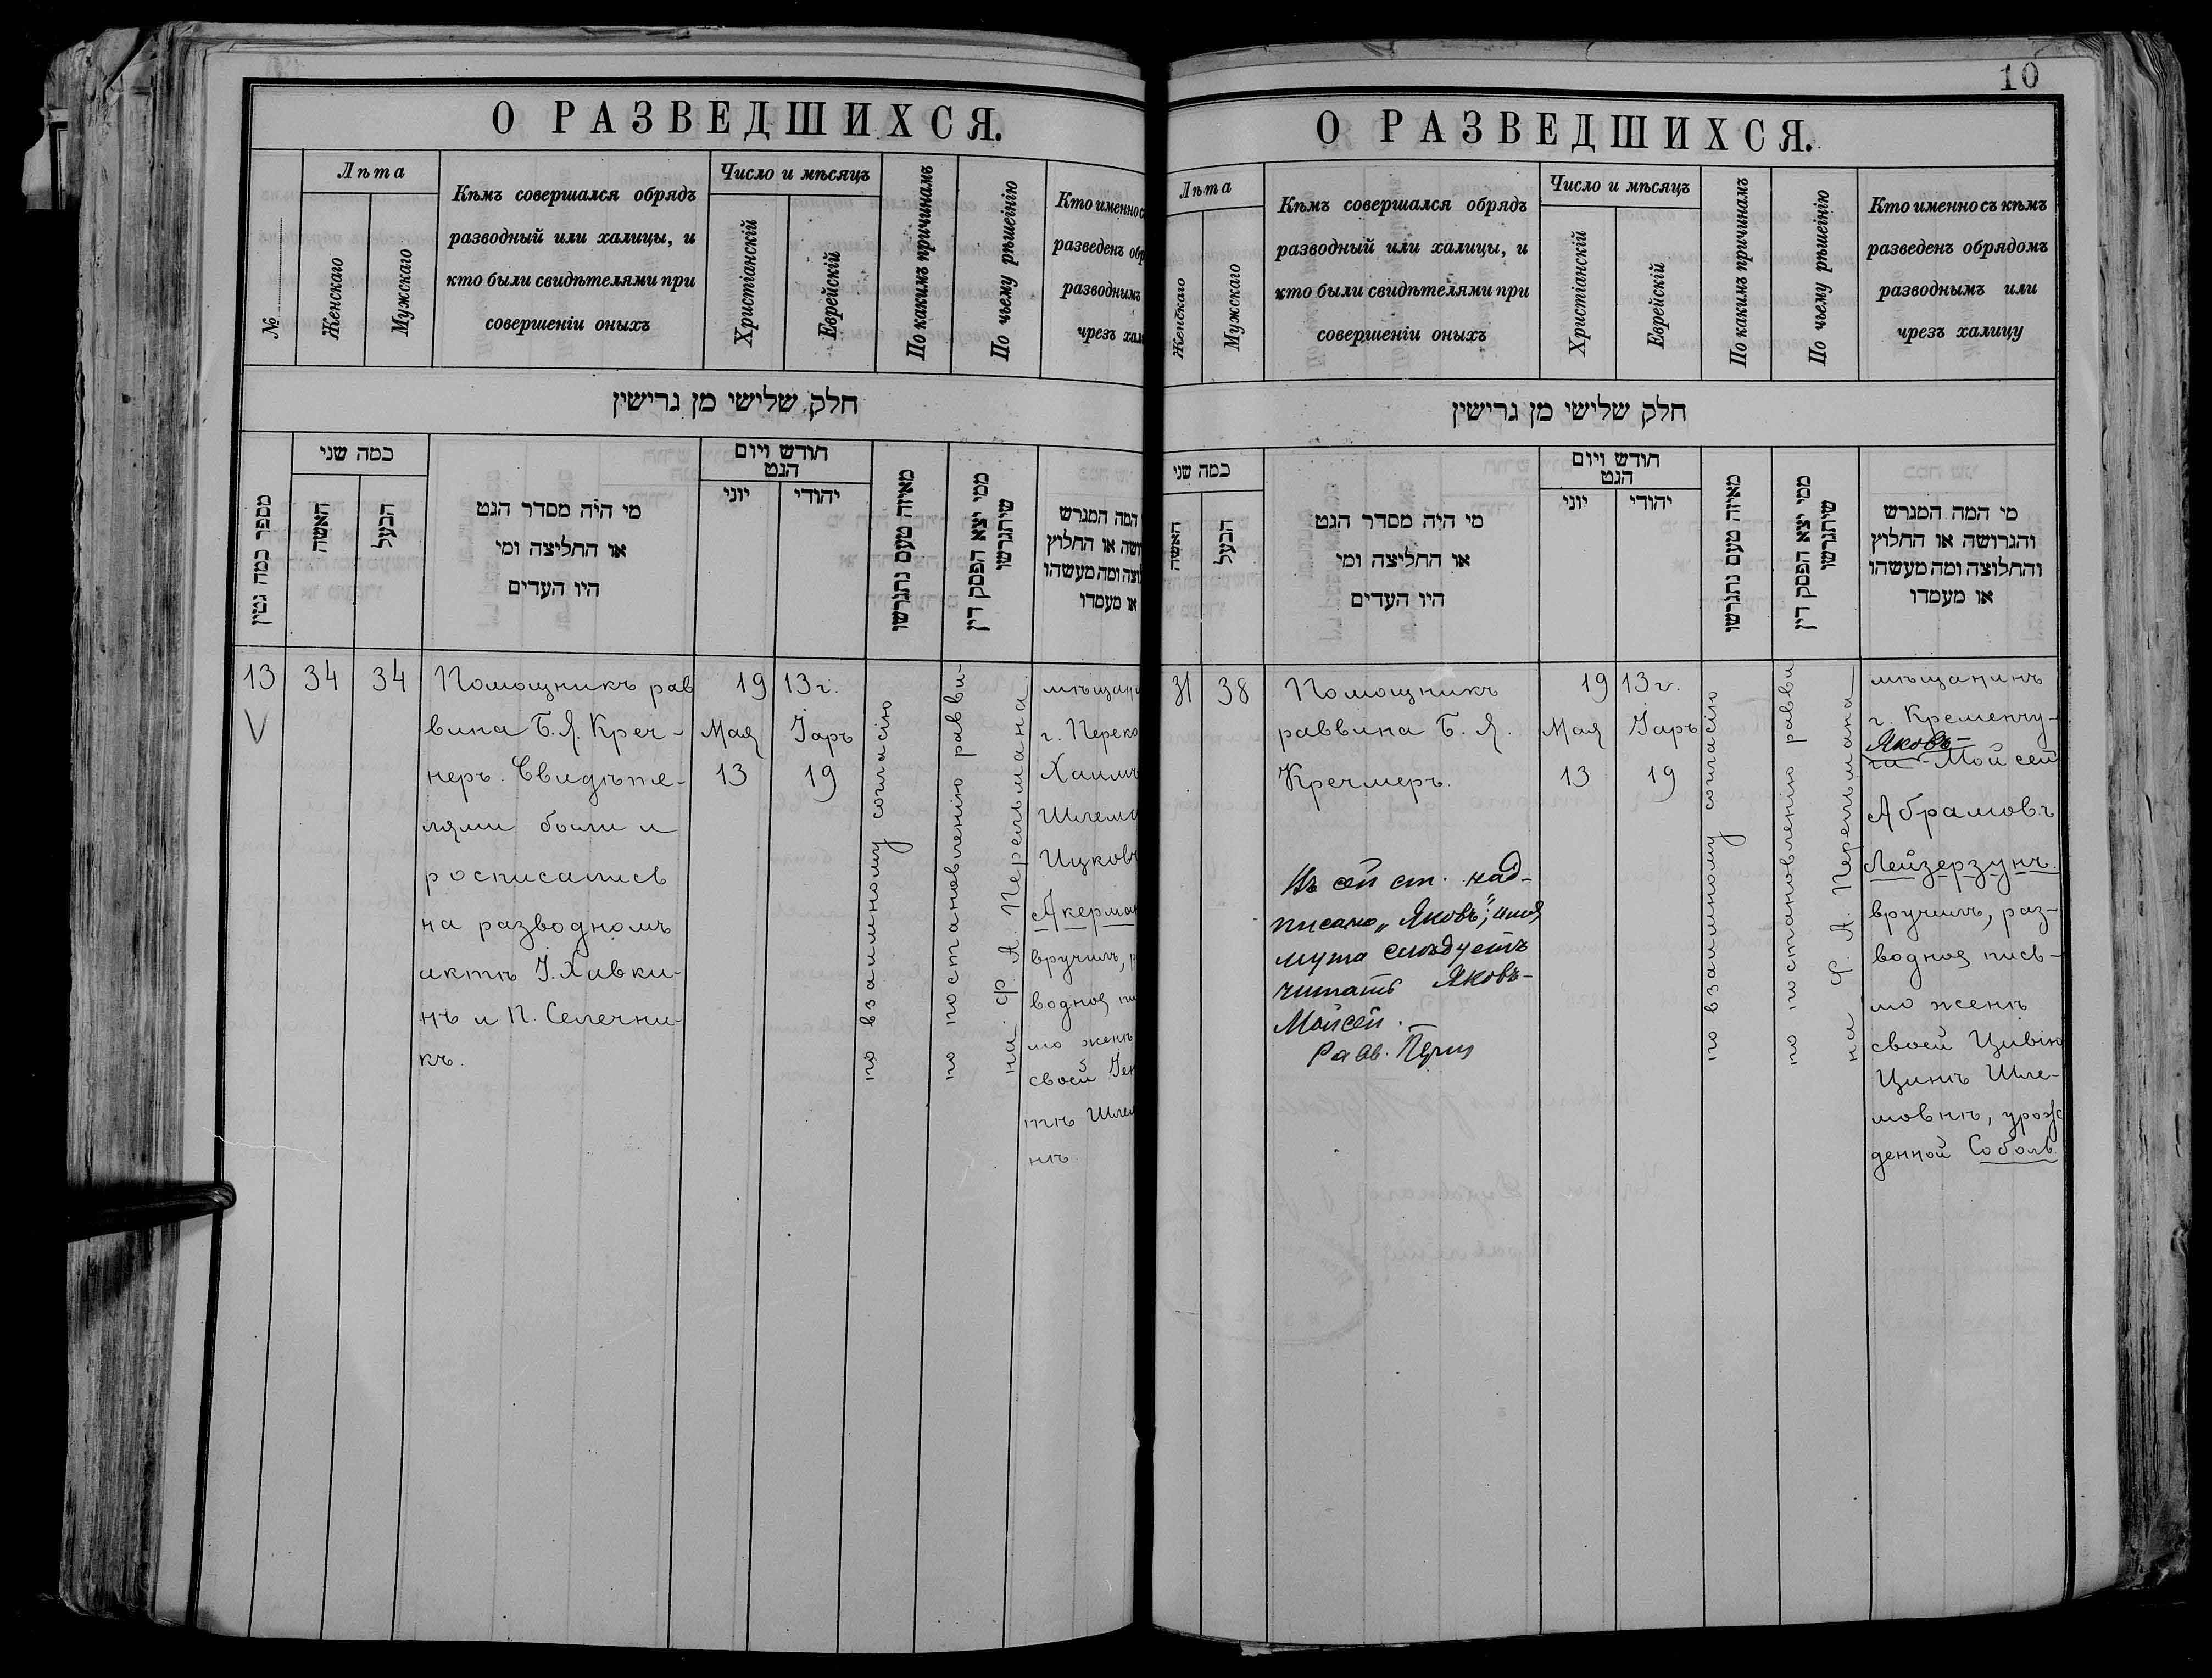 О РАЗВЕДШИХСЯ.
№
Лѣта
Женскаго
Мужскаго
Кѣмъ совершался обрядъ
разводный или халицы, и
кто были свидѣтелями при
совершеніи оныхъ
Число и мѣсяцъ
Христіанскій
Еврейскій
По какимъ причинамъ
По чьему рѣшенію
Кто именно с
разведенъ обр
разводнымъ
чрезъ хал
חלק שלישי מן גרישין
מספר כמה גטין
כמה שני
האשה
הבעל
מי היה מסדר הגט
או החליצה ומי
היו העדים
חודש ויום
הגט
יוני
יהודי
מאיזה טעם נתגרשו
ממי יצא הפסק דין
שיתגרשו
המה המגרש
ושה או החלוץ
וצה ומה מעשהו
או מעמדו
13
34
34
Помощникъ рав
вина Б. Я. Креч-
неръ. Свидѣте-
лями были и
росписались
на разводномъ
актѣ І. Хавки-
нъ и П. Селечни-
къ.
19 13 г.
Мая Іаръ
13 19
по взаимному согласію
по постановленію равви-
на ф. А. Перельмана
мѣщани
г. Переко
Хаимъ
Шлема
Ицковъ
Акерман
вручилъ, р
водное пи
мо женѣ
своей Ген
тѣ Шлем
нѣ.
10
О РАЗВЕДШИХСЯ.
Лѣта
Женскаго
Мужскаго
Кѣмъ совершался обрядъ
разводный или халицы, и
кто были свидѣтелями при
совершеніи оныхъ
Число и мѣсяцъ
Христіанскій
Еврейскій
По какимъ причинамъ
По чьему рѣшенію
Кто именно съ кѣмъ
разведенъ обрядомъ
разводнымъ или
чрезъ халицу
חלק שלישי מן גרישין
כמה שני
האשה
הבעל
מי היה מסדר הגט
או החליצה ומי
היו העדים
חודש ויום
הגט
יוני
יהודי
מאיזה טעם נתגרשו
ממי יצא הפסק דין
שיתגרשו
מי המה המגרש
והגרושה או החלוץ
והחלוצה ומה מעשהו
או מעמדו
31
38
Помощникъ
раввина Б. Я.
Кречмеръ.
Въ сей ст. над-
писано „Яковъ"; имя
мужа слѣдуетъ
читать Яковъ-
Мойсей.
Равв.
19 13 г.
Мая Іаръ
13 19
по взаимному согласію
по постановленію равви
на ф. А. Перельмана
мѣщанинъ
г. Кременчу-
Яковъ-
га - Мойсей
Абрамовъ
Лейзерзунъ.
вручилъ, раз-
водное пись-
мо женѣ
своей Цивію
Цинѣ Шле-
мовнѣ, урож
денной Соболь.